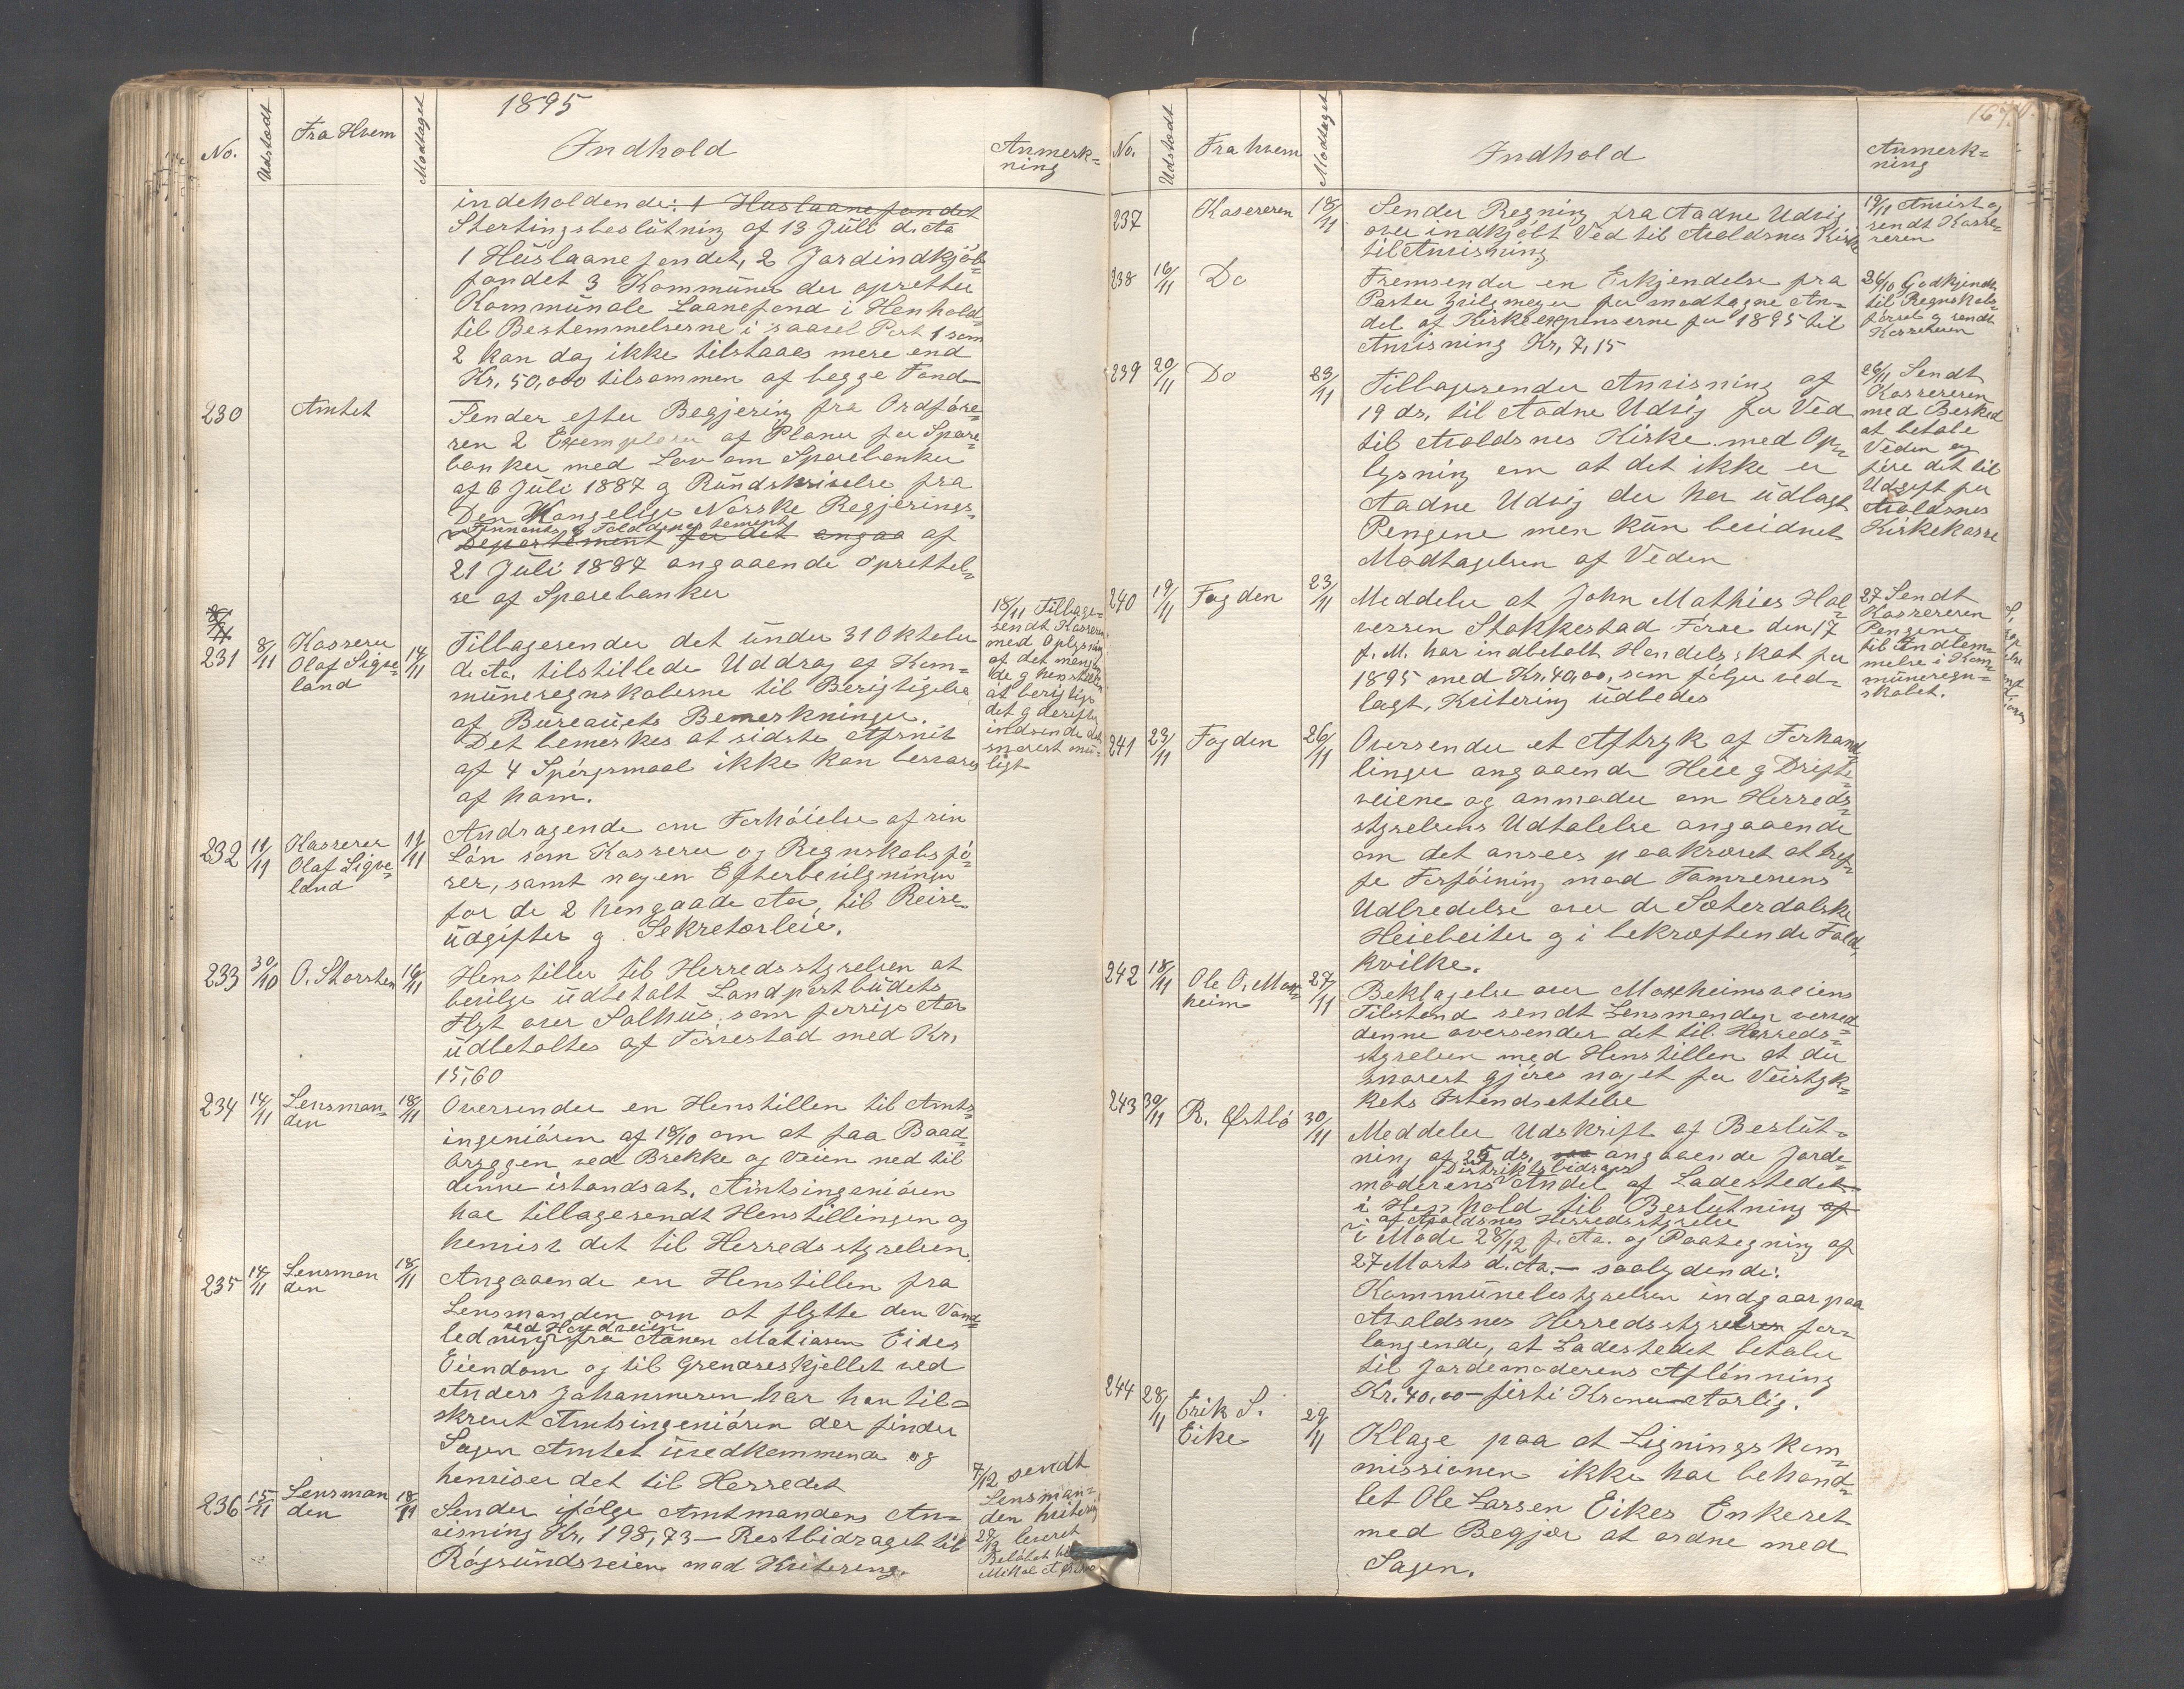 1895
No. Udstedt Fra Hvem Modtaget Indhold Anmerk=
ning
indeholdende: 1 Huslaanefondet
Stortingsbeslütning af 13 Jüli d. Aa
1 Hüslaanefondet, 2 Jordindkjöb=
fondet 3 Kommüner der opretter
Kommünale Laanefond i Henhold
til Bestemmelserne i saavel Post 1 som
2 kan dog ikke tilstaaes mere end
Kr. 50,000 tilsammen af begge Fond
230 Amtet Sender efter Begjering fra Ordföre=
ren 2 Exemplarer af Planer for Spare=
banker med Lov om Sparebanker
af 6 Jüli 1887 og Ründskrivelse fra
Den Kongelige Norske Regjerings=
Finants og Tolddepartement
Departement for det angaa af
21 Jüli 1887 angaaende Oprettel=
se af Sparebanker
231 8/11 Kasserer
Olaf Sigve=
land 14/11
Tilbagesender det ünder 31 Oktober
d. Aa. tilstillede Uddrag af Kom=
müneregnskaberne til Berigtigelse
af Büreaüets Bemerkninger.
Det bemerkes at sidste Afsnit
af 4 Spörgsmaal ikke kan besvares
af ham.
18/11 Tilbage=
sendt Kasseren
med Oplysning
af det mangl
de og henstillen
at berigtige
det og derefter
indsende det
snarest mü=
ligt
232 11/11 Kasserer
Olaf Sigve=
land 14/11
Andragende om Forhöielse af sin
Lön som Kasserer og Regnskabsfö=
rer, samt nogen Efterbevilgninger
for de 2 hengaade Aar, til Reise=
üdgifter og Sekretærleie.
233 30/10 O. Storsten 16/11
Henstiller til Herredsstyrelsen at
bevilge üdbetalt Landpostbüdets
Flyt over Salhüs, som forrige Aar
üdbetaltes af Förrestad med Kr.
15,60
234 14/11 Lensman=
den 18/11
Oversender en Henstillen til Amts=
ingeniören af 18/10 om at faa Baad=
bryggen ved Brekke og Veien ned til
denne istandsat. Amtsingeniören
har tilbagesendt Henstillingen og
henvist det til Herredsstyrelsen.
235 14/11 Lensman
den 18/11
Angaaende en Henstillen fra
Lensmanden om at flytte den Vand=
ved Hovedveien
ledning fra Aanen Matiasen Eides
Eiendom og til Grenæseskjellet ved
Anders Johannesen har han til=
skrevet Amtsingeniören der finder
Sagen Amtet üvedkommende og
henviser det til Herredet
236 15/11 Lensman
den 18/11
Sender ifölge Amtmandens An=
visning Kr. 198,73 — Restbidraget til
Rögsündsveien mod Kvitering.
7/12 sendt
Lensman=
den kvitering
28/12 leveret
Belöbet
Mikal
No. Udstedt Fra hvem Modtaget Indhold Anmerk=
ning
237 Kasereren 18/11
Sender Regning fra Aadne Udvig
over indkjöbt Ved til Avaldsnes Kirke
til Anvisning
19/11 Anvist og
sendt Kasse=
reren
238 16/11 Do
Fremsender en Erkjendelse fra
for modtagne An=
del af Kirkeexpenserne for 1895 til
Anvisning Kr, 7,15
26/10 Godkjendt
til Regnskabs=
försel og sendt
Kassereren
239 20/11 Do 23/11
Tilbagesender Anvisning af
19 ds. til Aadne Udvig for Ved
til Avaldsnes Kirke med Op=
lysning om at det ikke er
Aadne Udvig der har üdlagt
Pengene men kün bevidnet
Modtagelsen af Veden
26/11 Sendt
Kassereren
med Besked
at betale
Veden og
före det til
Udgift for
Avaldsnes
Kirkekasse
240 19/11 Fogden 23/11
Meddeler at John Mathies Hal=
vorsen Stokkestad Förre den 17
f. M. har indbetalt Handelsskat for
1895 med Kr. 40,00, som fölger ved=
lagt, Kvitering üdbedes
27 Sendt
Kassereren
Pengene
til Indlem=
melse i Kom=
müneregn=
skabet.
241 23/11 Fogden 26/11
Oversender et Aftryk af Forhand=
linger angaaende Heie og Drifte=
veiene og anmoder om Herreds=
styrelsens Udtalelse angaaende
om det ansees paakrævet at tref=
fe Forföining mod Tamrenens
Udbredelse over de Sæterdalske
Heiebeiter og i bekræftende Fald,
hvilke.
242 18/11 Ole O. Mox=
heim 27/11
Beklagelse over Moxheimsveiens
Tilstand sendt Lensmanden
denne oversender det til Herreds=
styrelsen med Henstillen at der
snarest gjöres noget for Veistyk=
kets Istandsettelse
243 30/11 R. Østbö 30/11
Meddeler Udskrift af Beslüt=
ning af 25 ds. angaaende Jorde=
Distriktsbidrags
moderens Andel af Ladestedet
i Henhold til Beslütning af
af Avaldsnes Herredsstyrelse
i Möde 28/12 f. Aa. og Paategning af
27 Marts d. Aa. — saalydende:
Kommünebestyrelsen indgaar paa
Avaldsnes Herredsstyrelses for=
langende, at Ladestedet betaler
til Jordemoderens Aflönning
Kr. 40,00 — firti Kroner Aarlig.
244 28/11 Erik S.
Eike 29/11
Klage paa at Lignings kom=
missionen ikke har behand=
let Ole Larsen Eikes Enkeret
med Begjær at ordne med
Sagen.